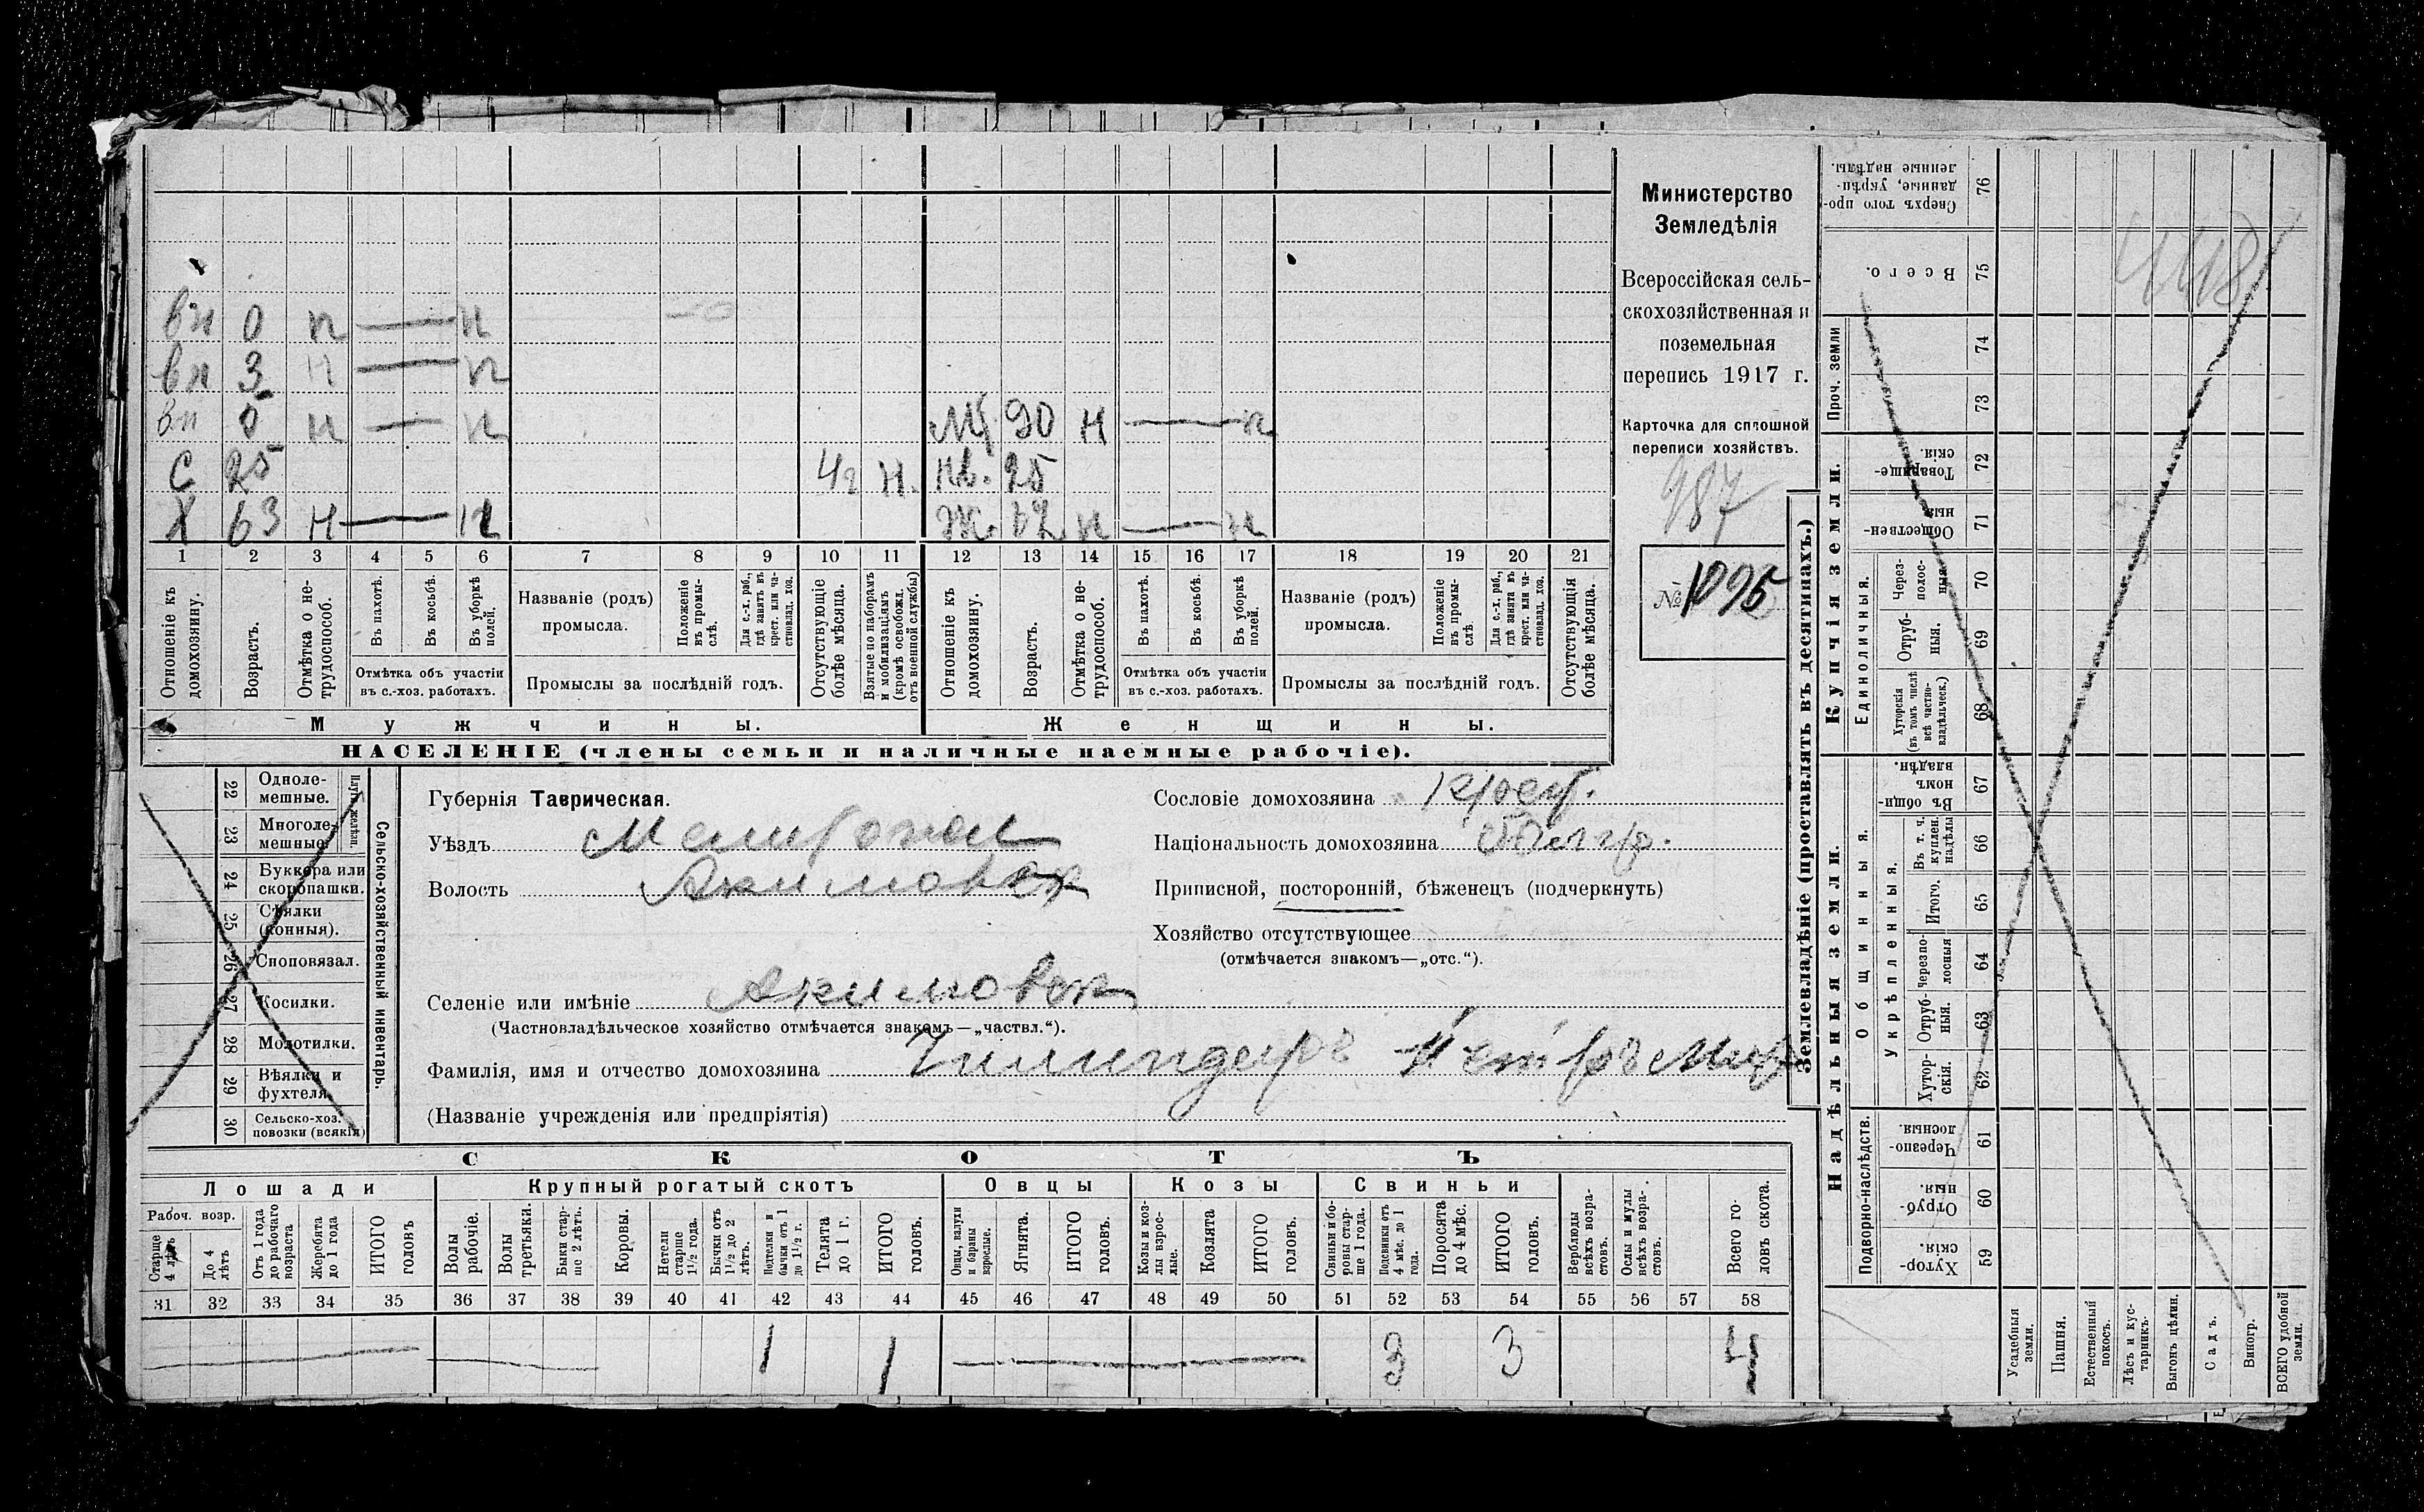 вн 0 н — н
вн 3 н — н
вн 5 н — н
М. 90 н — н
с 25 4г н. нв. 25
Х 63 н — н
Ж. н — н
1 2 3 4 5 6 7 8 9 10 11 12 13 14 15 16 17 18 19 20 21
Отношеніе къ домохозяину.
Возрастъ.
Отмѣтка о не-трудоспособ.
Въ пахотѣ.
Въ косьбѣ.
Въ уборкѣ полей.
Отмѣтка объ участіи
въ с.-хоз. работахъ.
Названіе (родъ)
промысла.
Положеніе въ промы-слѣ.
Для с.-х. раб., гдѣ занятъ въ крест. или ча-стновлад. хоз.
Промыслы за послѣдній годъ.
Отсутствующіе болѣе мѣсяца.
Взятые по наборамъ и мобилизаціямъ (кромѣ освобожд. отъ военной службы)
Отношеніе къ домохозяину.
Возрастъ.
Отмѣтка о не-трудоспособ.
Въ пахотѣ.
Въ косьбѣ.
Въ уборкѣ полей.
Отмѣтка объ участіи
въ с.-хоз. работахъ.
Названіе (родъ)
промысла.
Положеніе въ промы-слѣ
Для с.-х. раб., гдѣ занята въ крест. или ча-стновлад. хоз.
Промыслы за послѣдній годъ.
Отсутствующія болѣе мѣсяца.
Мужчины.
Женщины.
НАСЕЛЕНІЕ (члены семьи и наличные наемные рабочіе).
Министерство
Земледѣлія
Всероссійская сель-
скохозяйственная и
поземельная
перепись 1917 г.
Карточка для сплошной
переписи хозяйствъ.
987
№ 1095
22 Одноле-мешные.
23 Многоле-мешные.
Плуги желѣзн.
24 Буккера или скоропашки.
25 Сѣялки (конныя).
26 Сноповязал.
27 Косилки.
28 Молотилки.
29 Вѣялки и фухтеля.
30 Сельско-хоз. повозки (всякія)
Сельско-хозяйственный инвентарь.
Губернія Таврическая.
Уѣздъ Мелитопол
Волость Акимовск
Селеніе или имѣніе Акимовка
(Частновладѣльческое хозяйство отмѣчается знакомъ—„частвл.“).
Фамилія, имя и отчество домохозяина Чилингеровъ Петръ
(Названіе учрежденія или предпріятія)
Сословіе домохозяина крест.
Національность домохозяина болгар.
Приписной, посторонній, бѣженецъ (подчеркнуть)
Хозяйство отсутствующее
(отмѣчается знакомъ—„отс.“).
СКОТЪ
Лошади
Рабоч. возр.
Старше 4 лѣтъ
До 4 лѣтъ
Отъ 1 года до рабочаго возраста
Жеребята до 1 года
ИТОГО головъ
Крупный рогатый скотъ
Волы рабочіе.
Волы третьяки.
Быки стар-ше 2 лѣтъ.
Коровы.
Нетели старше 1½ года.
Бычки отъ 1½ до 2 лѣтъ.
Подтелки и бычки отъ 1 до 1½ г.
Телята до 1 г.
ИТОГО головъ.
Овцы
Овцы, валухи и бараны взрослые.
Ягнята.
ИТОГО головъ.
Козы
Козы и коз-лы взрос-лые.
Козлята
ИТОГО головъ.
Свиньи
Свиньи и бо-ровы стар-ше 1 года.
Подсвинки отъ 4 мѣс. до 1 года.
Поросята до 4 мѣс.
ИТОГО головъ.
Верблюды всѣхъ возра-стовъ.
Ослы и мулы всѣхъ возра-стовъ.
Всего го-ловъ скота.
31 32 33 34 35 36 37 38 39 40 41 42 43 44 45 46 47 48 49 50 51 52 53 54 55 56 57 58
1 1 3 3 4
Землевладѣніе (проставлять въ десятинахъ.)
Купчія земли.
Надѣльныя земли.
76 Сверхъ того про-данные, укрѣп-ленные надѣлы.
75 Всего.
Проч. земли
74
73
72 Товарище-скія.
71 Обществен-ныя.
Единоличныя.
70 Через-полос-ныя.
69 Отруб-ныя.
68 Хуторскія (въ томъ числѣ всѣ частно-владѣльческ.)
Общинныя.
67 Въ общи-номъ владѣн.
Укрѣпленныя.
66 Въ т. ч. куплен. надѣлы
65 Итого.
64 черезпо-лосныя
63 Отруб-ныя.
62 Хутор-скія.
Подворно-наслѣдств.
61 Черезпо-лосныя.
60 Отруб-ныя.
59 Хутор-скія.
Усадебныя земли.
Пашня.
Естественный покосъ.
Лѣсъ и кус-тарникъ.
Выгонъ цѣлин.
Садъ.
Виногр.
ВСЕГО удобной земли.
448